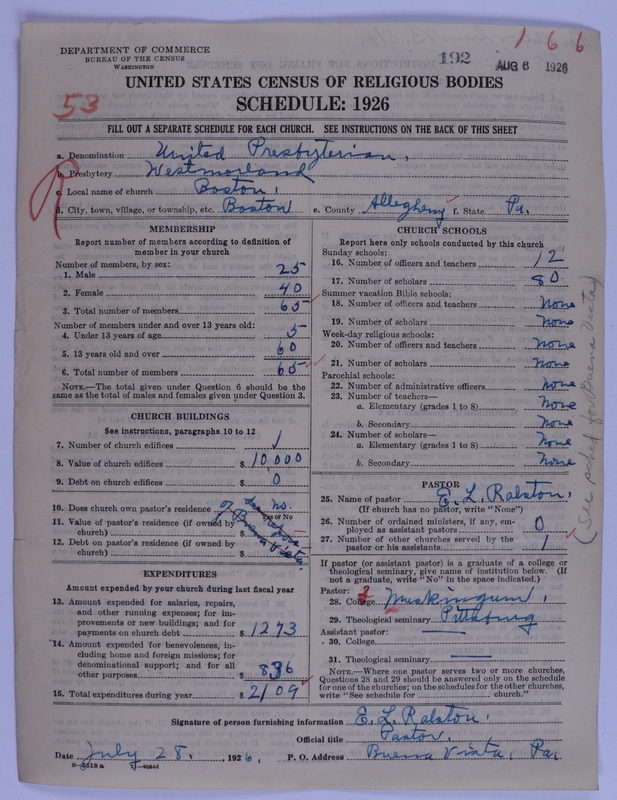 DEPARTMENT OF COMMERCE
BUREAU OF THE CENSUS
WASHINGTON
192
AUG 6 1926
1 6 6
UNITED STATES CENSUS OF RELIGIOUS BODIES
SCHEDULE: 1926
53
FILL OUT A SEPARATE SCHEDULE FOR EACH CHURCH. SEE INSTRUCTIONS ON THE BACK OF THIS SHEET
a. Denomination United Presbyterian,
b. Presbytery Westmorland
c. Local name of church Boston,
d. City, town, village, or township, etc. Boston e. County Allegheny f. State Pa.
MEMBERSHIP
Report number of members according to definition of
member in your church
Number of members, by sex:
1. Male 25
2. Female 40
3. Total number of members 65
Number of members under and over 13 years old:
4. Under 13 years of age 5
5. 13 years old and over 60
6. Total number of members 65
NOTE.—The total given under Question 6 should be
same as the total of males and females given under Question 3.
CHURCH BUILDINGS
See instructions, paragraphs 10 to 12
7. Number of church edifices 1
8. Value of church edifices $ 10000
9. Debt on church edifices $ 0
10. Does church own pastor's residence no.
Yes or No
11. Value of pastor's residence (if owned by
church) $
12. Debt on pastor's residence (if owned by
church) $
of Buena Vista
EXPENDITURES
Amount expended by your church during last fiscal year
13. Amount expended for salaries, repairs,
and other running expenses; for im-
provements or new buildings; and for
payments on church debt $ 1273
14. Amount expended for benevolences, in-
cluding home and foreign missions; for
denominational support; and for all
other purposes $ 836
15. Total expenditures during year $ 2109
CHURCH SCHOOLS
Report here only schools conducted by this church
Sunday schools:
16. Number of officers and teachers 12
17. Number of scholars 80
Summer vacation Bible schools:
18. Number of officers and teachers None
19. Number of scholars None
Week-day religious schools:
20. Number of officers and teachers None
21. Number of scholars None
Parochial schools:
22. Number of administrative officers None
23. Number of teachers—
a. Elementary (grades 1 to 8) None
b. Secondary None
24. Number of scholars—
a. Elementary (grades 1 to 8) None
b. Secondary None
PASTOR
25. Name of pastor E. L. Ralston,
(If church has no pastor, write "None")
26. Number of ordained ministers, if any, em-
ployed as assistant pastors 0
27. Number of other churches served by the
pastor or his assistants 1
If pastor (or assistant pastor) is a graduate of a college or
theological seminary, give name of institution below. (If
not a graduate, write "No" in the space indicated.)
Pastor:
28. College Muskingum,
29. Theological seminary Pittsburg
Assistant pastor:
30. College
31. Theological seminary
NOTE.—Where one pastor serves two or more churches,
Questions 28 and 29 should be answered only on the schedule
for one of the churches; on the schedules for the other churches,
write "See schedule for church."
(See sched for Buena Vista)
Signature of person furnishing information E. L. Ralston,
Official title Pastor,
Date July 28, 1926, P. O. Address Buena Vista, Pa,